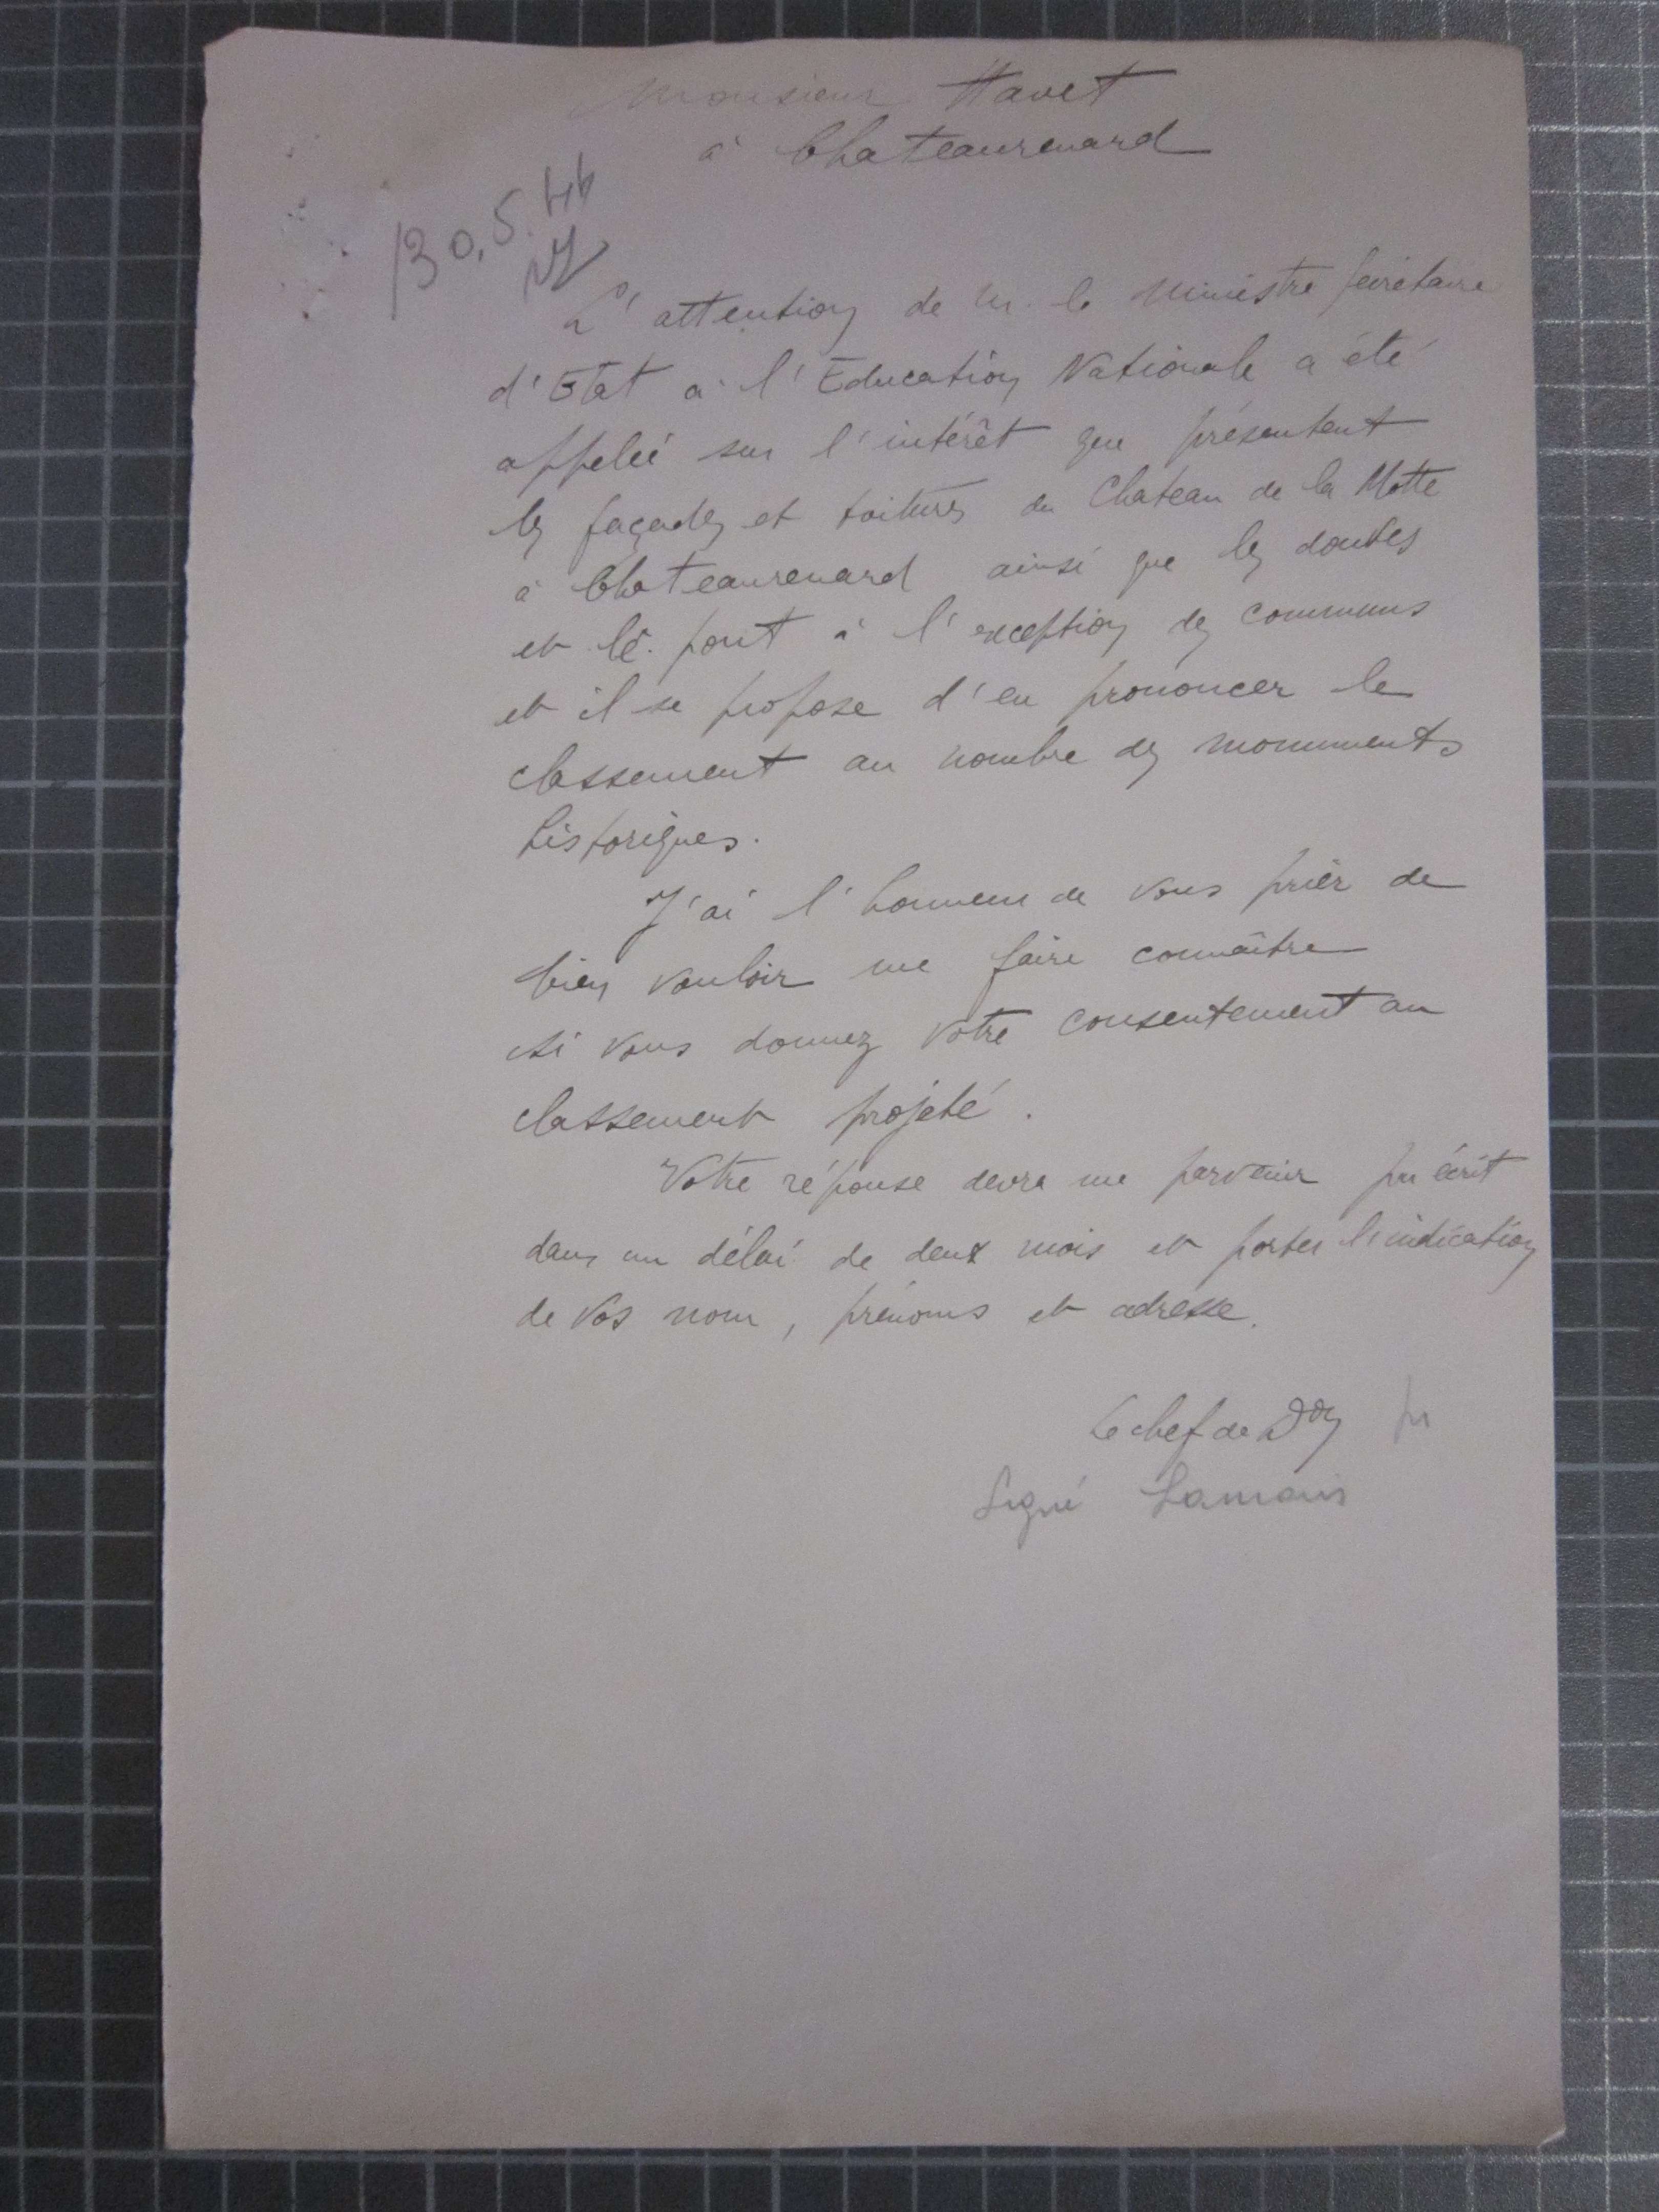 Monsieur Havet
à Chateaurenard
30.5.44
L'attention de M. le Ministre Secrétaire
d'Etat à l'Education Nationale a été
appelée sur l'intérêt que présentent
les façades et toitures du Chateau de la Motte
à Chateaurenard ainsi que les douves
et le pont à l'exception des communs
et il se propose d'en prononcer le
classement au nombre des monuments
historiques.
J'ai l'honneur de vous prier de
bien vouloir me faire connaître
si vous donnez votre consentement au
classement projeté.
Votre réponse devra me parvenir par écrit
dans un délai de deux mois et porter l'indication
de vos nom, prénoms et adresse.
Le chef de Don
Signé